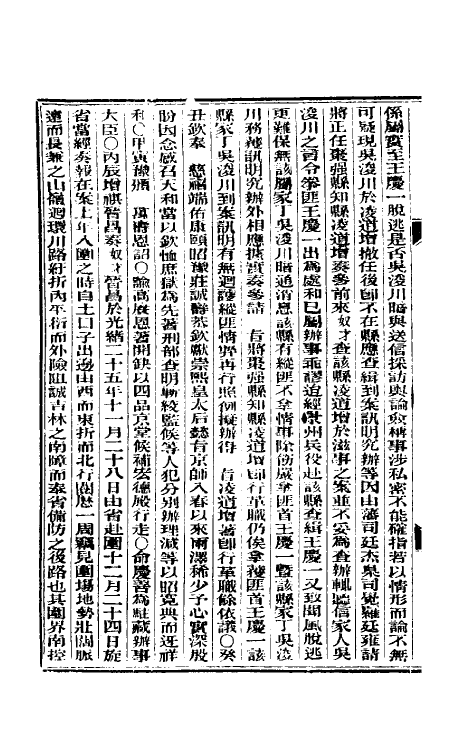 係屬實至王慶一脫逃是否吳浚川暗與送信採訪與論僉稱事涉私密不能確指若以情形而論不無
可疑現吳浚川於凌道增撤任後卽不在縣應查緝到案訊明究辦等因由藩司廷杰臬司覺羅廷雍請
將正任棗强縣知縣凌道增奏參前來奴才查該縣凌道增於滋事之案並不妥爲查辦輒聽信家人吳
浚川之言令拳匪王慶一出爲處和已屬辦事乖謬迨經景州兵役赴該縣查緝王慶一又致聞風脫逃
更難保無該屬家丁吳浚川暗通消息該縣有縱匪不拿情事除飭嚴拿匪首王慶一暨該縣家丁吳浚
川務獲訊明究辦外相應據實奏參請　旨將棗强縣知縣凌道增卽行革職仍俟拿獲匪首王慶一該
縣家丁吳浚川到案訊明有無迴護縱匪情弊再行照例擬辦得　旨凌道增著卽行革職餘依議○癸
丑欽奉　慈禧端佑康頤昭豫莊誠壽恭欽獻崇熙皇太后懿旨京師入春以來雨澤稀少予心實深殷
盼因念感召天和當以欽恤庶獄爲先著刑部查明斬絞監候等人犯分別辦理減等以昭寬典而迓祥
和○甲寅豫撫　　恩詔○諭高賡恩著開缺以四品京堂候補宏德殿行走○命慶善爲駐藏辦事
大臣○丙辰增祺晉昌奏奴才晉昌於光緒二十五年十一月二十八日由省赴圍十二月二十四日旋
省當經奏報在案上年入圍之時自土口子出邊由西而東折而北行閱歷一周竊見圍場地勢壯闊脈
遠而長兼之山嶺迴環川路紆折內平衍而外險阻誠吉林之南障而奉省備防之後路也其圍界南控